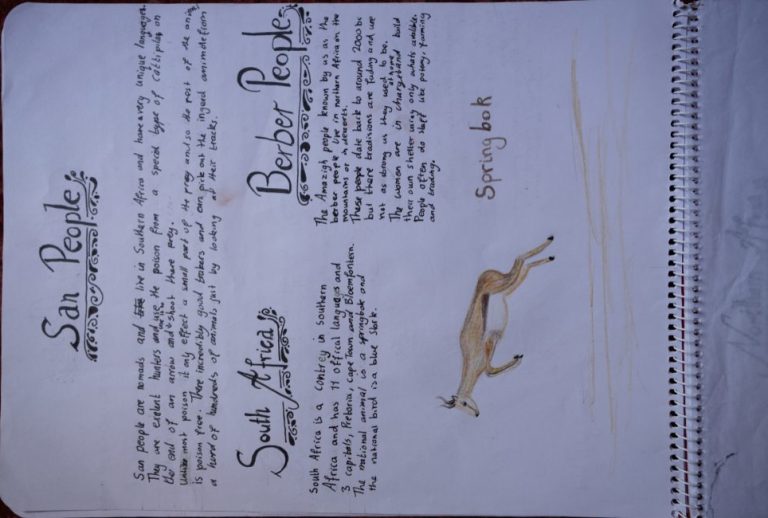 San People
San people are nomads and live in Southern Africa and have a very unique languages.
They are exelent hunters and use the poison from a special type of catipiler on
the end of an arrow and shoot there prey.
Unlike most poison it only effect a small part of the prey and so the rest of the anim
is poison free. There incredibly good trakers and can pick out the ingerd animale from
a herd of hundreds of animals just by looking at their tracks.
South Africa
South Africa is a contrey in southern
Africa and has 11 offical languages and
3 capitals, Pretoria, Cape Town and Bloemfontern.
The national animal is a springbok and
the national bird is a blue stork.
Berber People
The Amazigh people known by us as the
berber people live in northern Africa on the
mountains or in deserts.
These people date back to around 2000 bc
but there tradisions are fading and are
not as strong as they used to be.
The women are in charge and build
their own shelter using only whats
People often do stuff like potery, farming
and trading.
Springbok